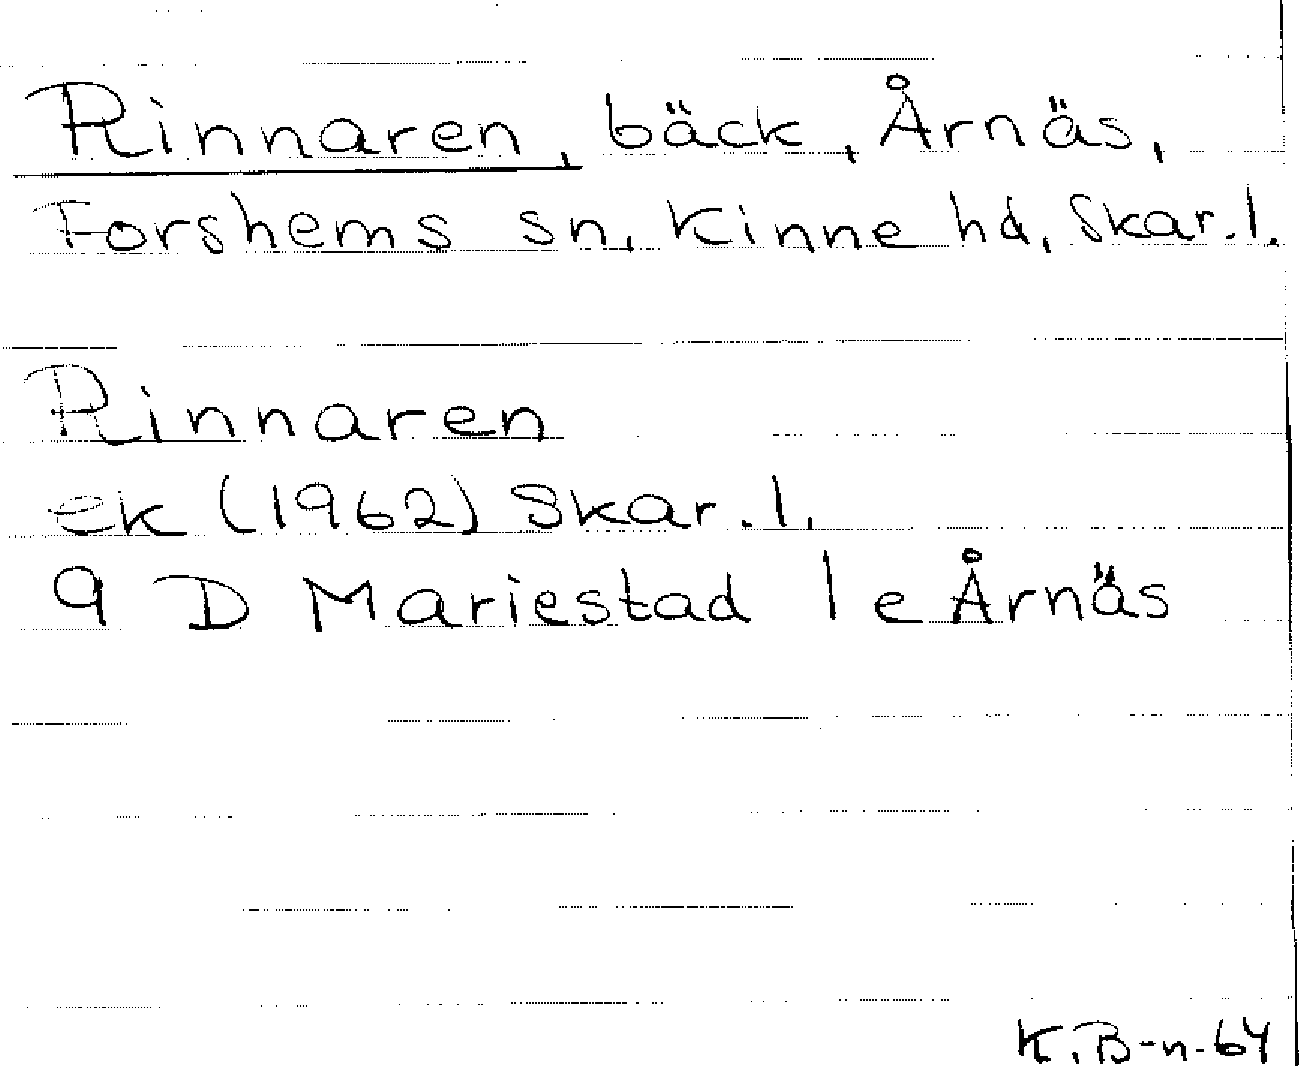 Rinnaren, bäck, Årnäs,
Forshems sn, Kinne hd, Skar.l.
Rinnaren
ek (1962) Skar.l.
9 D Mariestad 1 e Årnäs
K.B-n-64